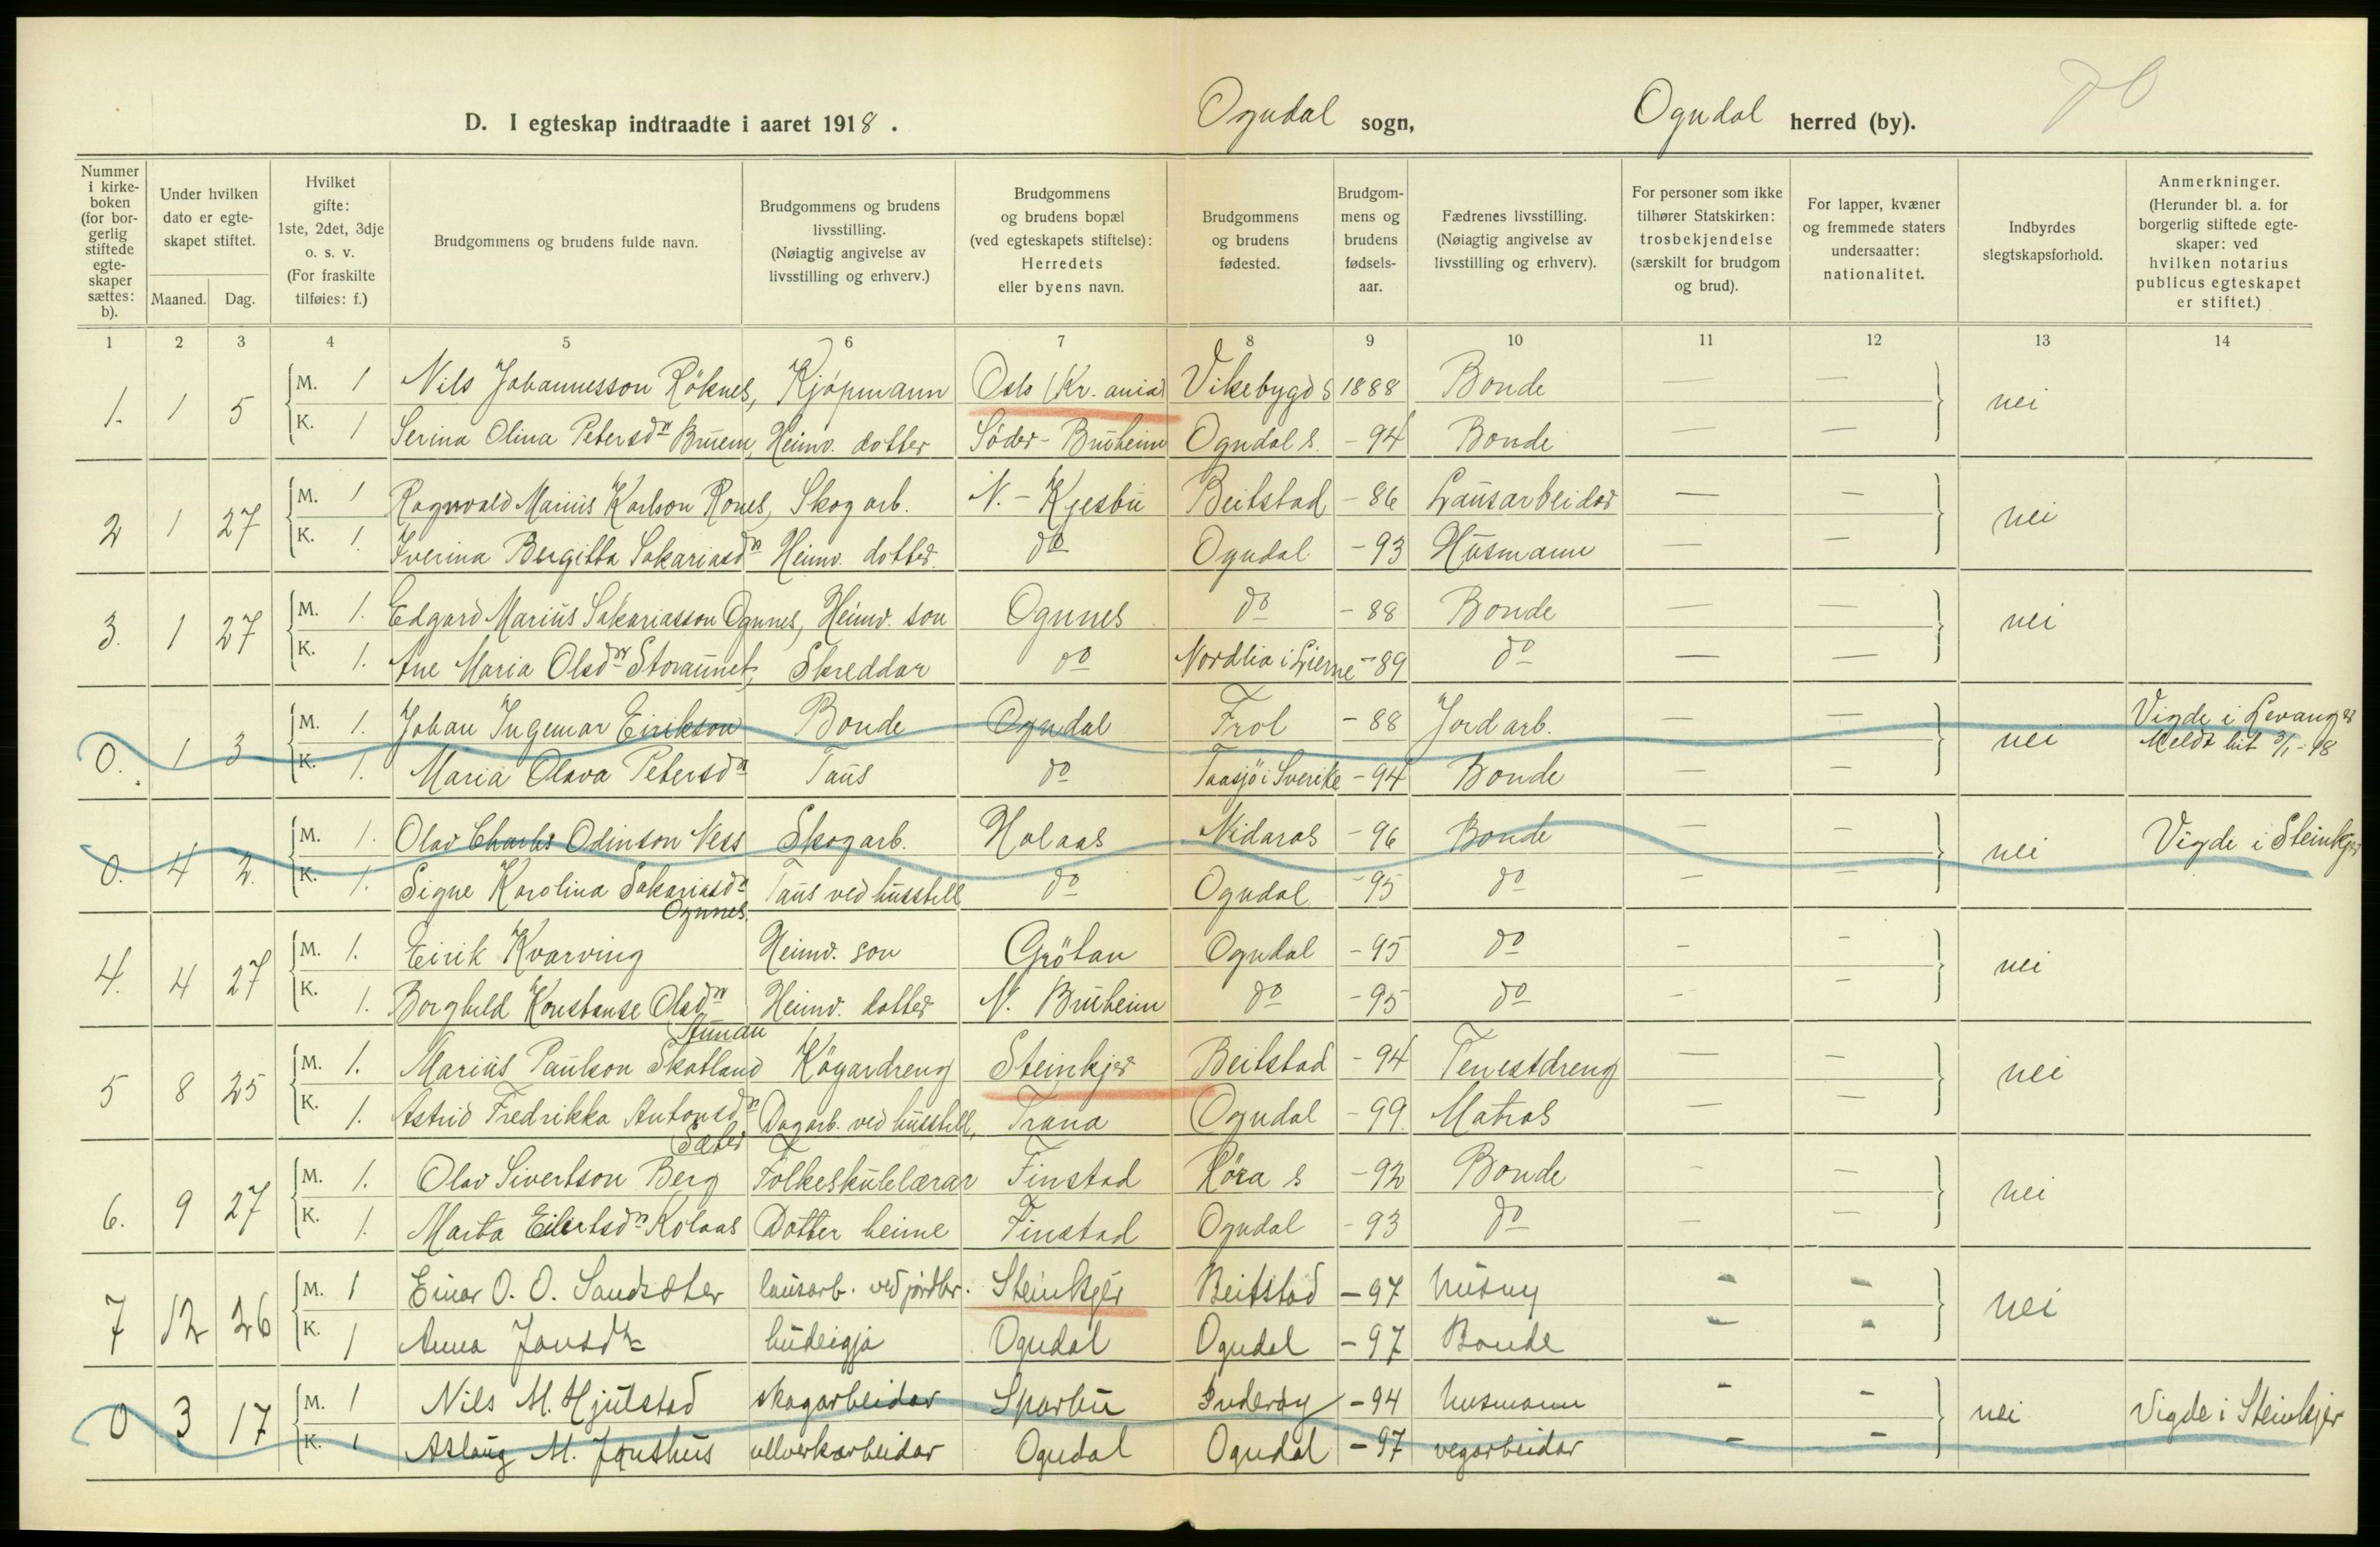 D. I egteskap indtraadte i aaret 1918. Ogndal sogn, Ogndal herred (by).
Nummer i kirkeboken (for borgerlig stiftede egteskaper sættes: b).
Under hvilken dato er egteskapet stiftet.
Maaned. Dag.
Hvilket gifte: 1ste, 2det, 3dje o. s. v. (For fraskilte tilføies: f.)
Brudgommens og brudens fulde navn.
Brudgommens og brudens livsstilling. (Nøiagtig angivelse av livsstilling og erhverv.)
Brudgommens og brudens bopæl (ved egteskapets stiftelse): Herredets eller byens navn.
Brudgommens og brudens fødested.
Brudgommens og brudens fødselsaar.
Fædrenes livsstilling. (Nøiagtig angivelse av livsstilling og erhverv).
For personer som ikke tilhører Statskirken: trosbekjendelse (særskilt for brudgom og brud).
For lapper, kvæner og fremmede staters undersaatter: nationalitet.
Indbyrdes slegtskapsforhold.
Anmerkninger. (Herunder bl. a. for borgerlig stiftede egteskaper: ved hvilken notarius publicus egteskapet er stiftet.)
1 2 3 4 5 6 7 8 9 10 11 12 13 14
1. 1 5 M. 1 Nils Johannesson Röknes, Kjøpmann Oslo (Kr.ania) Vikebygd s 1888 Bonde — — nei
K. 1 Serina Olina Petersdn Bruem, Heimv. dotter Söder-Bruheim Ogndal s. -94 Bonde — —
2 1 27 M. 1 Ragnvald Marius Karlson Rones, Skogarb. N.-Kjesbu Beitstad -86 Lausarbeidar — — nei
K. 1. Iverina Bergitta Sakariasdn Heimv. dotter. do Ogndal. -93 Husmann — —
3. 1 27 M. 1. Edgard Marius Sakariasson Ognnes, Heimv. son Ognnes do -88 Bonde — — nei
K. 1. Ane Maria Olsdn Storaunet, Skreddar do Nordlia i Lierne -89 do — —
0. 1 3 M. 1. Johan Ingemar Eirikson Bonde Ogndal Frol -88 Jordarb. — — nei Vigde i Levanger
K. 1. Maria Olava Petersdn Taus do Taasjö i Sverike -94 Bonde — — Meldt hit 3/1-18
0. 4 2. M. 1. Olav Charles Odinson Ness Skogarb. Holaas Nidaros -96 Bonde — — nei Vigde i Steinkjer
K. 1. Signe Karolina Sakariasdn Ognnes. Taus ved husstell do Ogndal -95 do — —
4. 4 27 M. 1. Eirik Kvarving Heimv. son Grötan Ogndal -95 do — — nei
K. 1. Borghild Konstanse Olsdn Heimv. dotter N. Bruheim do -95 do — —
5 8 25 M. 1. Marius Paulson Skotland Køyardreng Steinkjer Beitstad -94 Tenestdreng — — nei
K. 1. Astrid Fredrikka Antonsdn Sæter Dagarb. ved husstell, Trana Ogndal -99. Matros — —
6. 9 27 M. 1. Olav Sivertson Berg Folkeskulelærar Finstad Röra s -92 Bonde — — nei
K. 1. Marta Eilertsdn Kolaas Dotter heime Finstad Ogndal -93 do — —
7 12 26 M. 1 Einar O. O. Sandsæter lausarb. ved jordbr. Steinkjer Beitstad -97 husm — — nei
K. 1 Anna Jonsdtr budeigja Ogndal Ogndal -97 Bonde — —
0 3 17 M. 1 Nils M. Hjulstad skogarbeidar Sparbu Inderøy -94 husmann — — nei Vigde i Steinkjer
K. 1 Aslaug M. Jønshus ullverkarbeidar Ogndal Ogndal -97 vegarbeidar — —